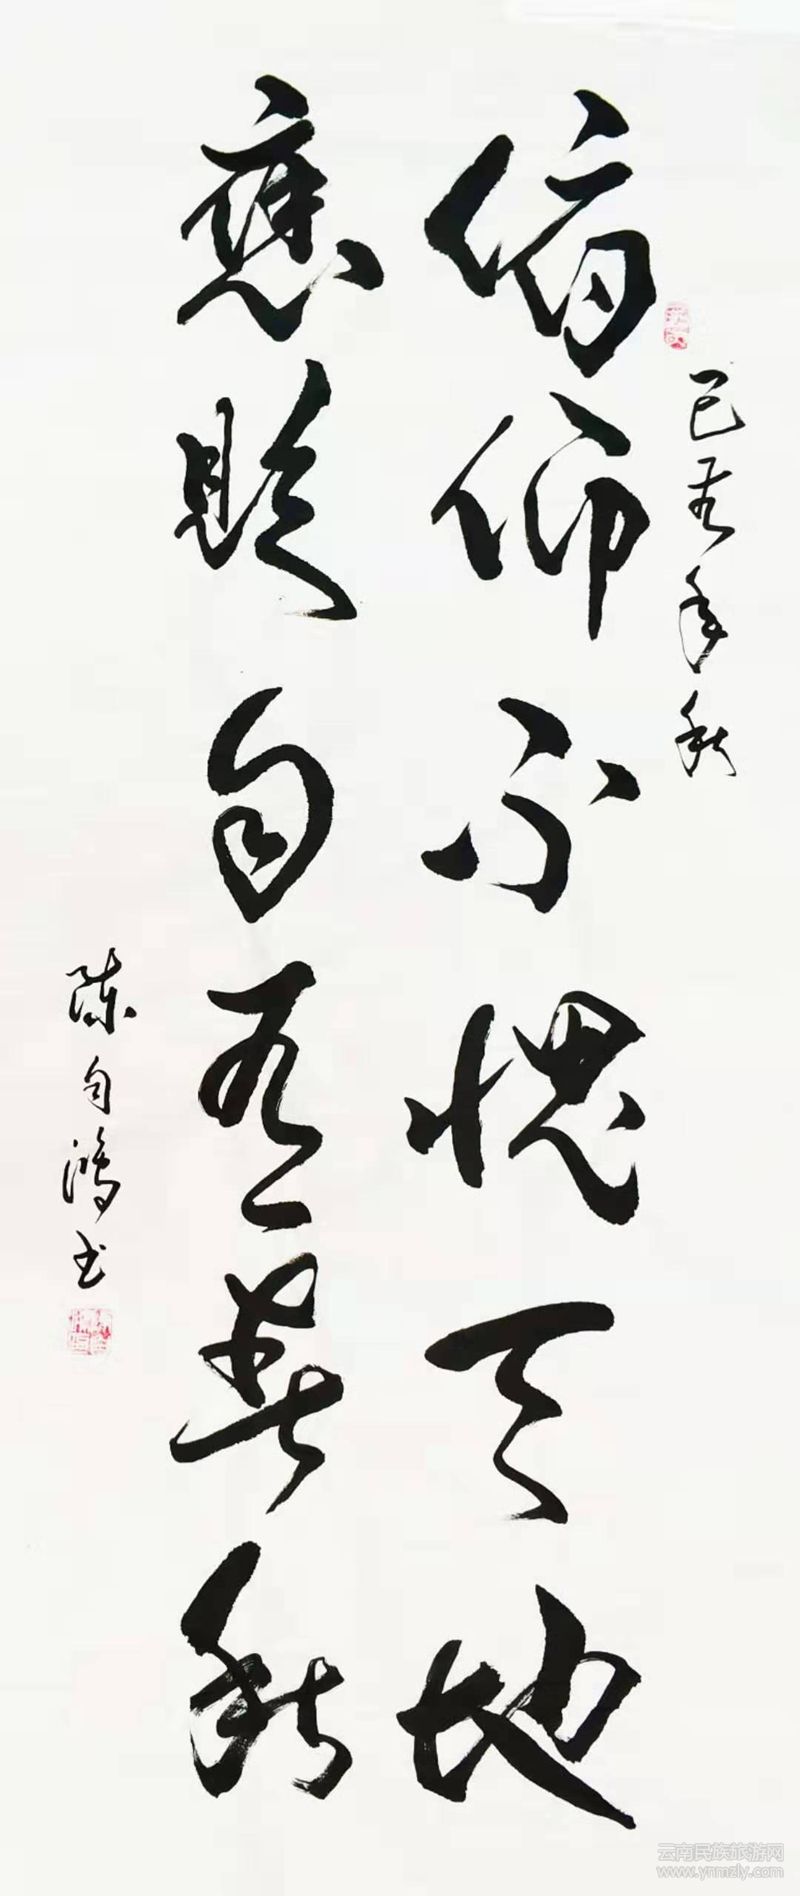 己亥年秋
俯仰不愧天地
褒貶自有春秋
陈自鸿书
云南民族旅游网
www.ynmzly.com